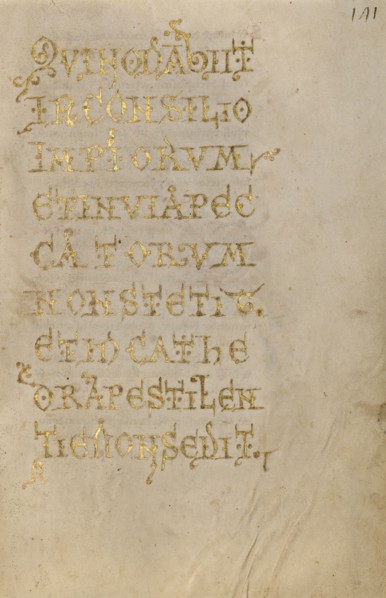 QVI NON ABIIT
IN CONSILIO
IMPIORVM
ET IN VIA PEC
CATORVM
NON STETIT.
ET IN CATHE
DRA PESTILEN
TIE NON SEDIT.